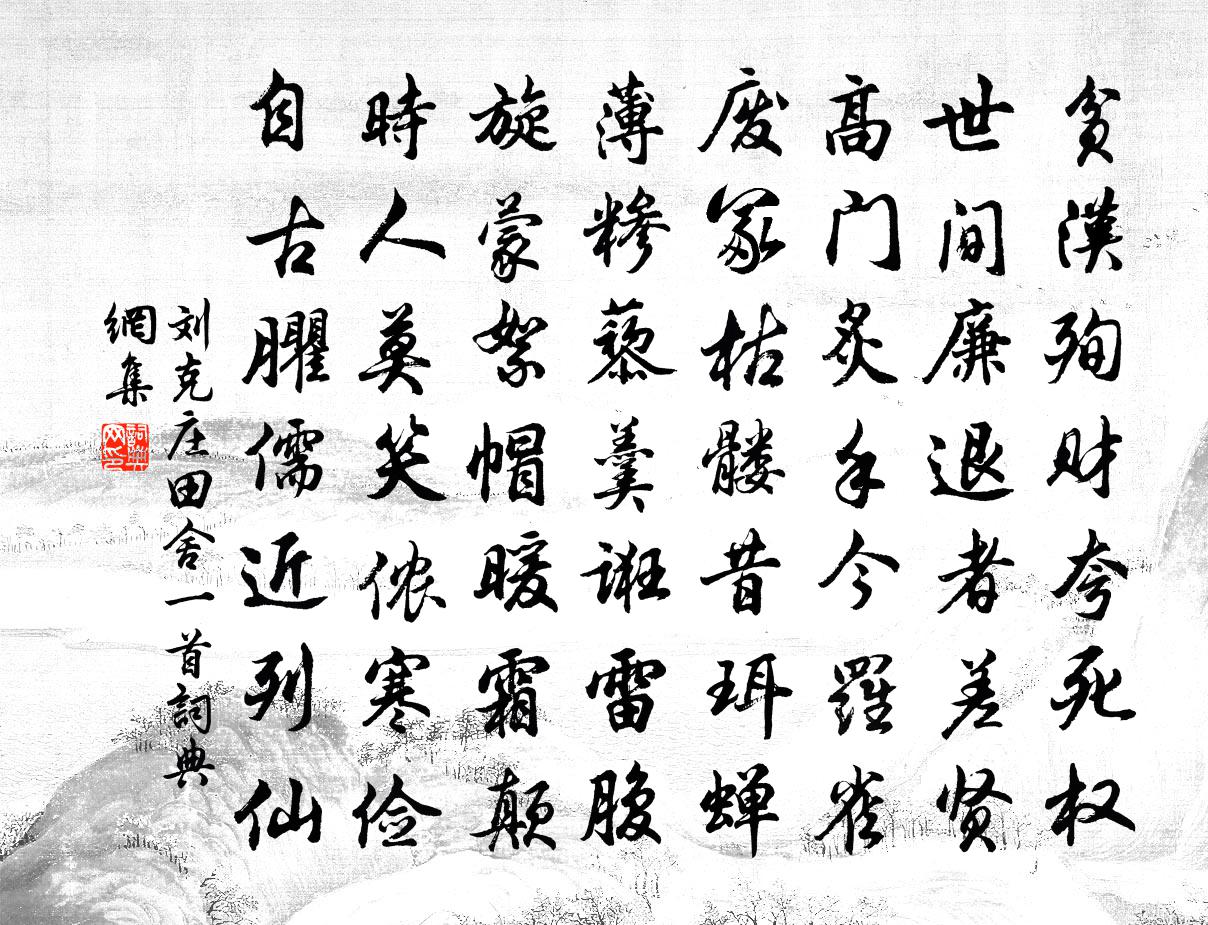 贫漢殉财夸死权
世间廉退者差贤
高门炙手今羅雀
废冢枯髅昔珥蝉
薄糁藜羹誑雷腹
旋蒙絮帽暖霜颠
時人莫笑侬寒俭
自古臞儒近列仙
刘克庄田舍一首詞典
網集